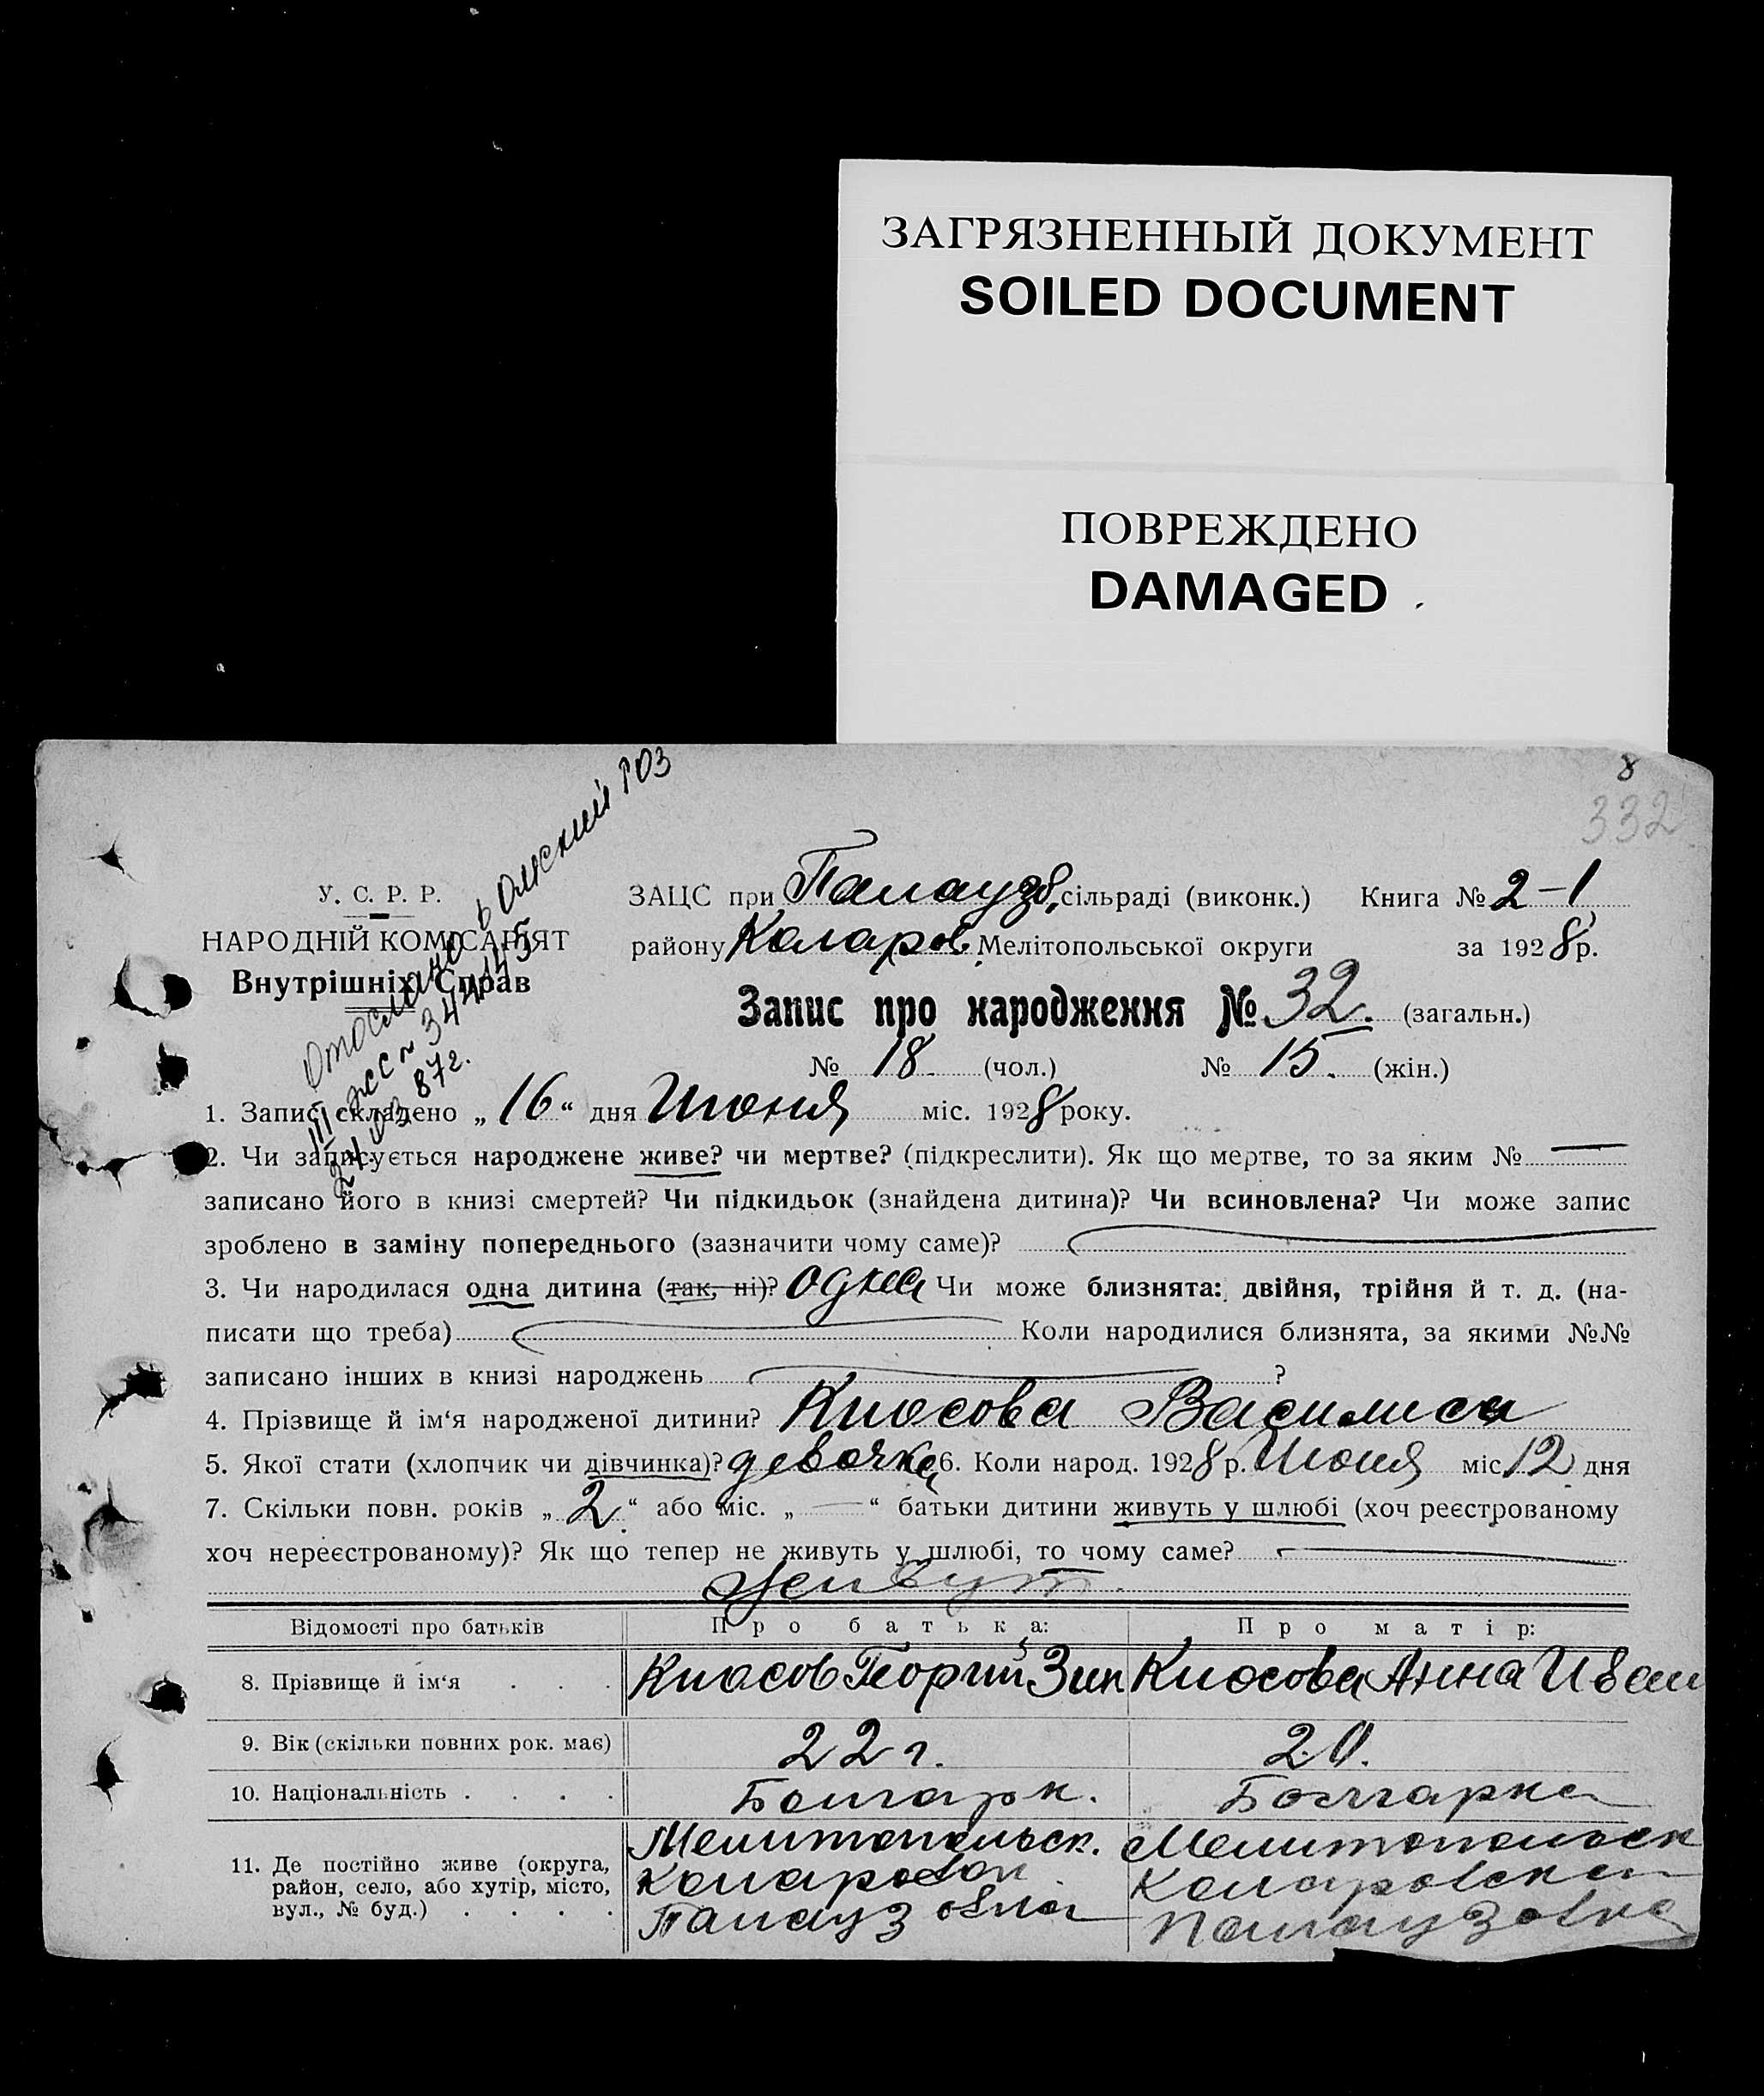 ЗАГРЯЗНЕННЫЙ ДОКУМЕНТ
SOILED DOCUMENT
ПОВРЕЖДЕНО
DAMAGED
8
332
Отослано в Омский
344145
87г.
У. С. Р. Р.
НАРОДНІЙ КОМІСАРІЯТ
Внутрішніх Справ
ЗАЦС при Палаузов, сільраді (виконк.) Книга № 2-1
району Коларов. Мелітопольської округи за 1928 р.
Запис про народження № 32. (загальн.)
№ 18. (чол.) № 15. (жін.)
1. Запис складено „16“ дня Июня міс. 1928 року.
2. Чи записується народжене живе? чи мертве? (підкреслити). Як що мертве, то за яким № —
записано його в книзі смертей? Чи підкидьок (знайдена дитина)? Чи всиновлена? Чи може запис
зроблено в заміну попереднього (зазначити чому саме)?
3. Чи народилася одна дитина (так, ні)? одна Чи може близнята: двійня, трійня й т. д. (на-
писати що треба) Коли народилися близнята, за якими №№
записано інших в книзі народжень ?
4. Прізвище й ім‘я народженої дитини? Кюсова Василиса
5. Якої стати (хлопчик чи дівчинка)? девочка 6. Коли народ. 1928 р. Июня міс. 12 дня
7. Скільки повн. років „2“ або міс. „—“ батьки дитини живуть у шлюбі (хоч реєстрованому
хоч нереєстрованому)? Як що тепер не живуть у шлюбі, то чому саме? —
живут.
Відомості про батьків Про батька: Про матір:
8. Прізвище й ім‘я . . . Кюсов Георгий Зин Кюсова Анна Иван
9. Вік (скільки повних рок. має) 22 г. 20.
10. Національність . . . . Болгарк. Болгарка
11. Де постійно живе (округа, район, село, або хутір, місто, вул., № буд.) . . . .
Мелитопольск. Мелитопольск
Коларовск Коларовска
Палаузовка Палаузовка